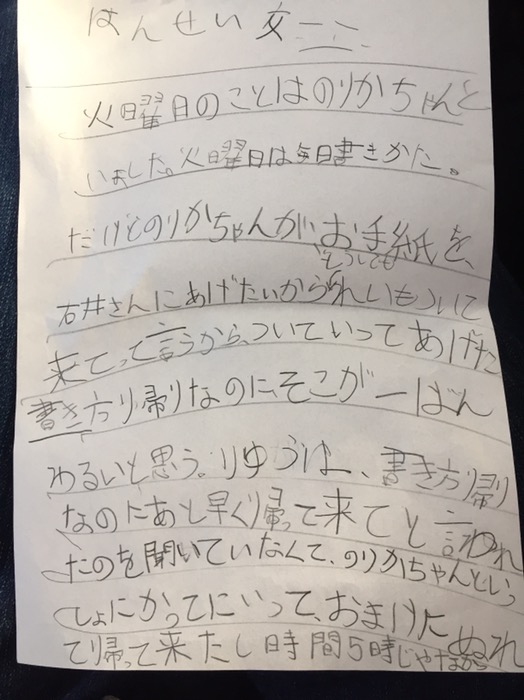 はんせい文
火曜日のことはのりかちゃんと
いました。火曜日は毎日書きかた。
だけどのりかちゃんが、お手紙を、
どうしても
石井さんにあげたいかられいもついて
来てって言うから、ついていってあげた
書き方り帰りなのに、そこが一ばん
わるいと思う。りゆうは、書き方り帰り
なのにあと早くり帰って来てと言われ
たのを聞いていなくて、のりかちゃんといっ
しょにかってにいって、おまけにぬれ
て帰って来たし時間5時じゃ